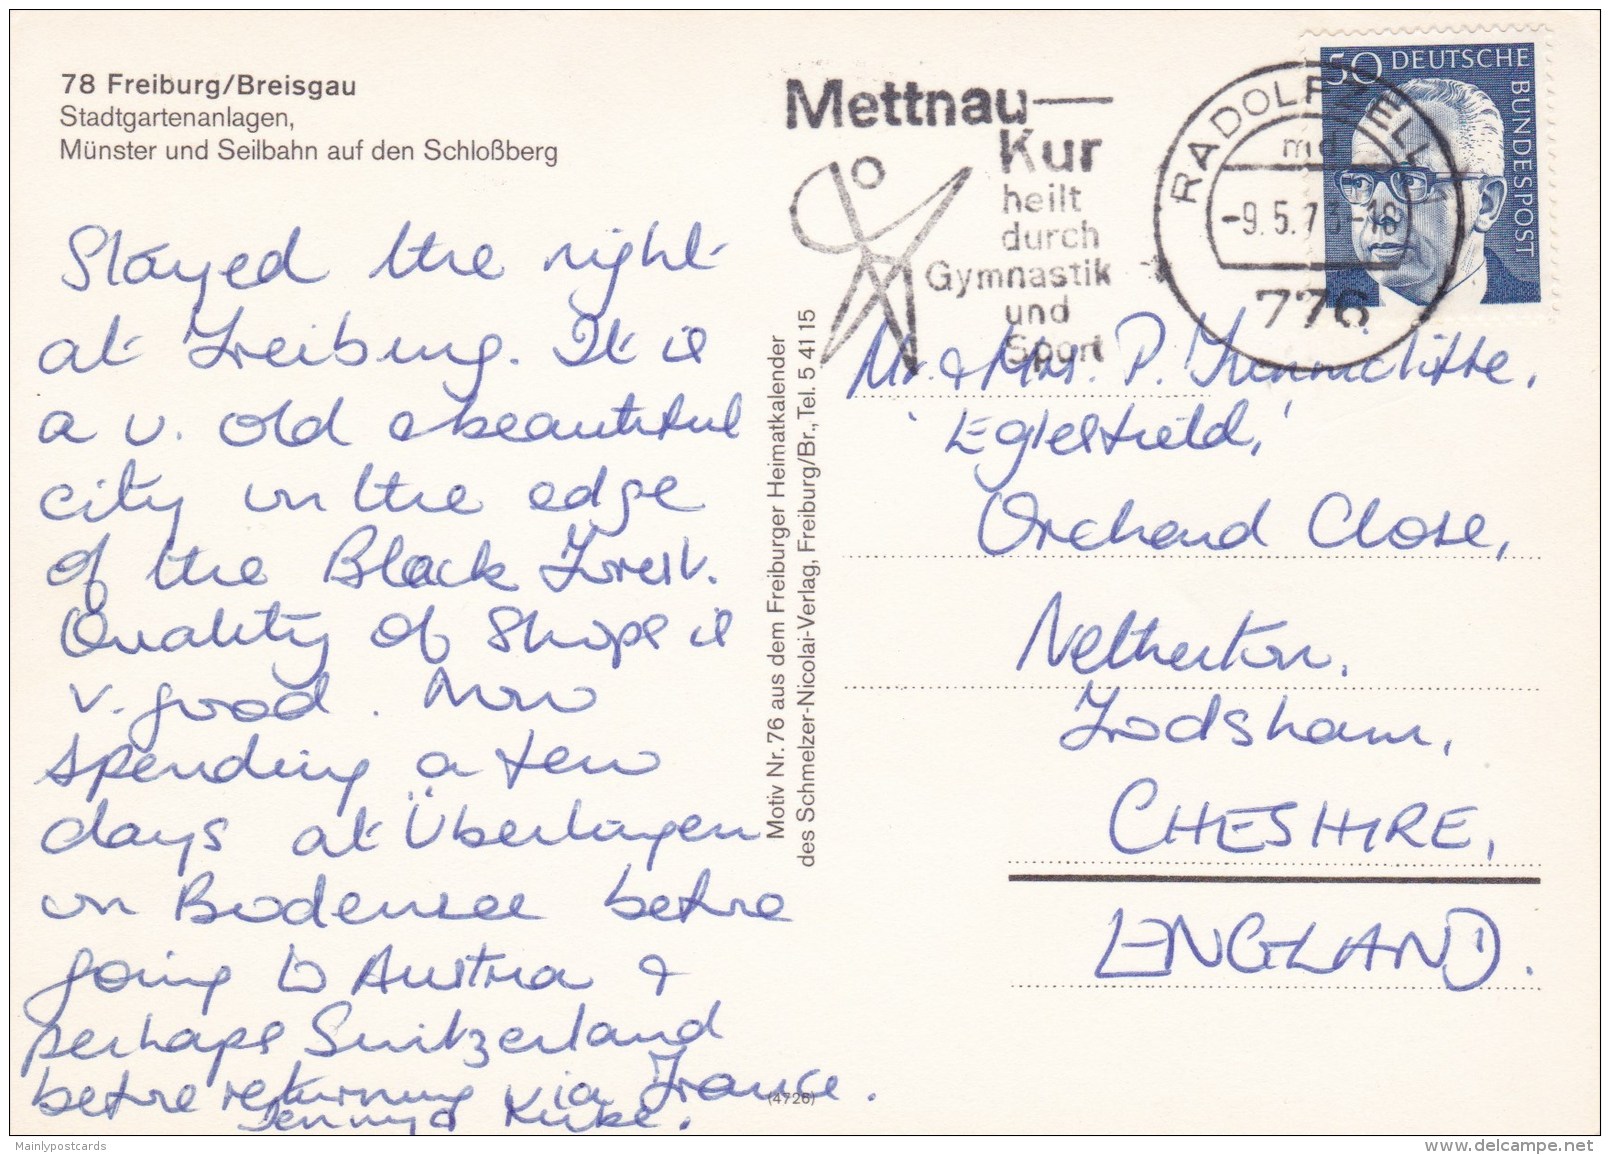 78 Freiburg/Breisgau
Stadtgartenanlagen,
Münster und Seilbahn auf den Schloßberg
Stayed the night
at Freiburg. It is
a v. old & beautiful
city on the edge
of the Black Forest.
Quality of Shops is
v. good. Now
spending a few
days at Überlingen
on Bodensee before
going to Austria &
perhaps Switzerland
before returning via France.
Jenny &
Motiv Nr. 76 aus dem Freiburger Heimatkalender
des Schmelzer-Nicolai-Verlag, Freiburg/Br., Tel. 5 41 15
(4726)
Mettnau—
Kur
heilt
durch
Gymnastik
und
Sport
RADOLFZELL 1
-9.5.73-18
776
50 DEUTSCHE
BUNDESPOST
Mr. & Mrs. P.
'Eglesfield,'
Orchard Close,
Netherton,
Frodsham,
CHESHIRE,
ENGLAND.
Mainlypostcards
www.delcampe.net